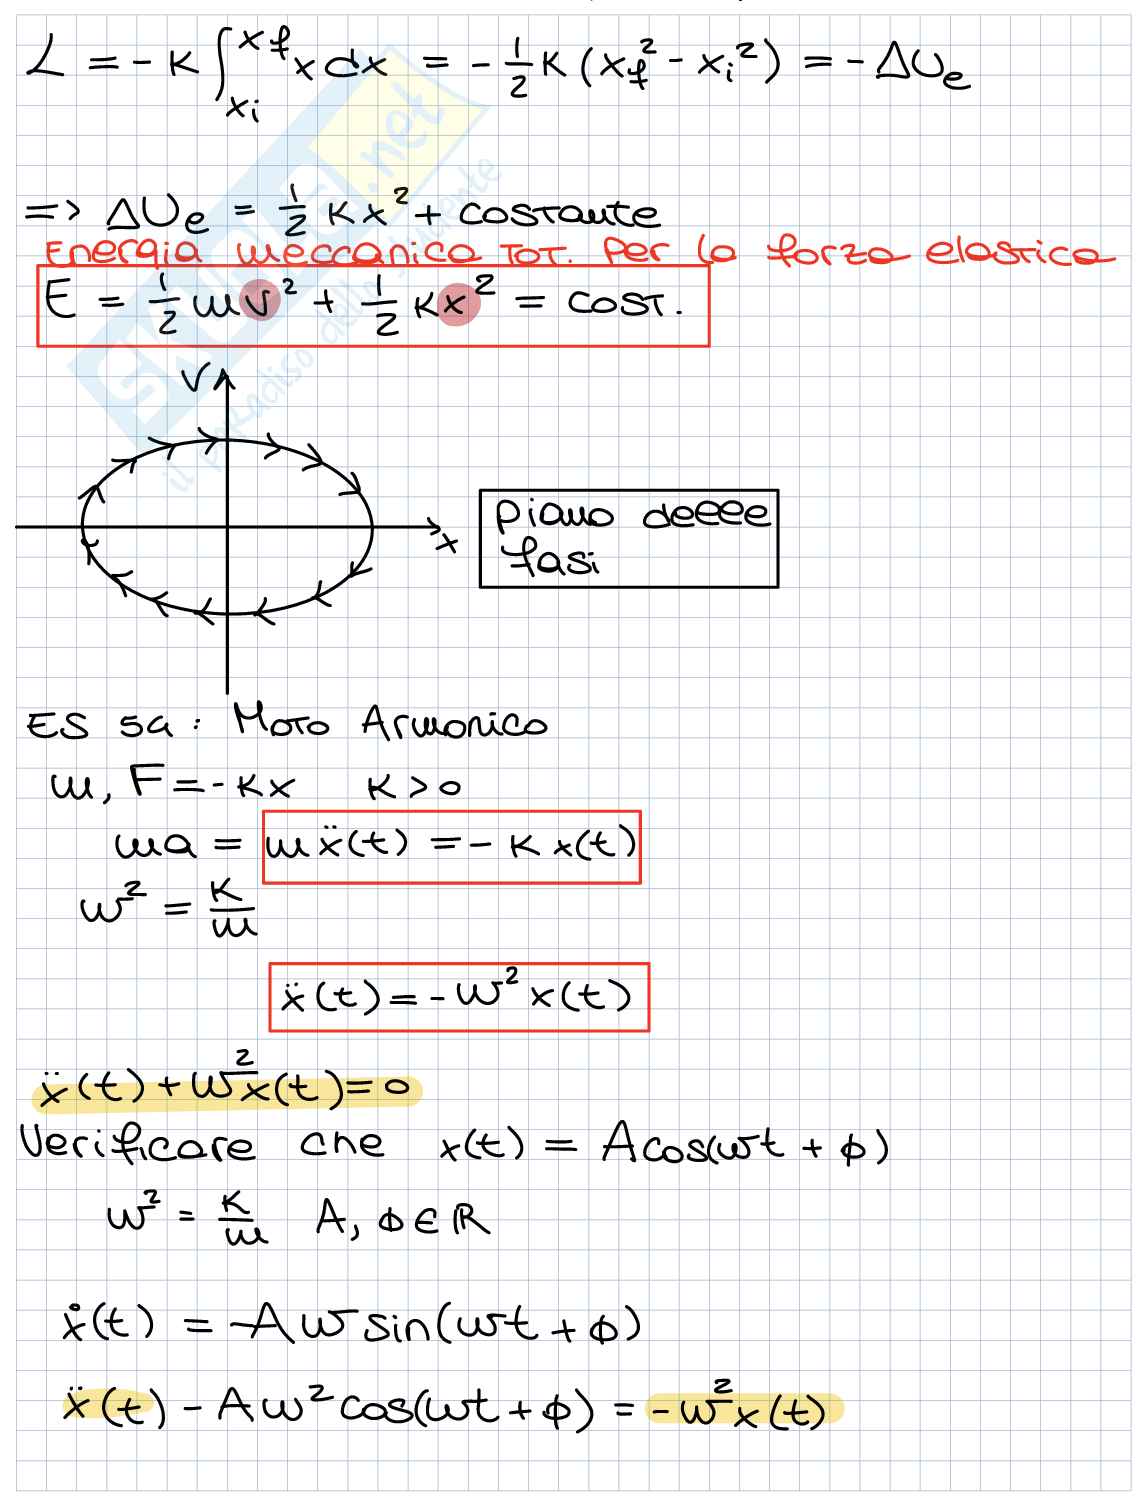 L = - K ∫_{xi}^{xf} x dx = - 1/2 K (xf² - xi²) = - ΔUe
=> ΔUe = 1/2 Kx² + costante
Energia meccanica Tot. Per la forza elastica
E = 1/2 mv² + 1/2 Kx² = cost.
V
x
Piano delle
fasi
ES 5a : Moto Armonico
m, F = - Kx K > 0
ma = mẍ(t) = - K x(t)
w² = K/m
ẍ(t) = - w² x(t)
ẍ(t) + w²x(t) = 0
Verificare che x(t) = A cos(wt + ϕ)
w² = K/m A, ϕ ∈ ℝ
ẋ(t) = -A w sin(wt + ϕ)
ẍ(t) - A w² cos(wt + ϕ) = - w² x(t)
SKUOLA.net
il paradiso dello studente